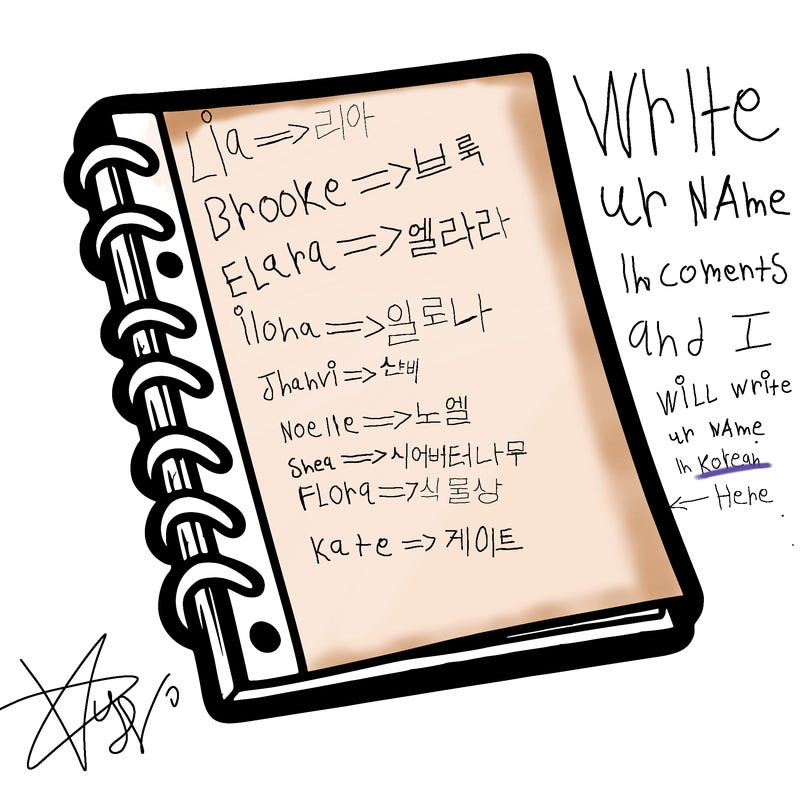 Lia => 리아
Brooke => 브룩
Elara => 엘라라
ilona => 일로나
Jhanvi => 샨비
Noelle => 노엘
Shea => 시어버터나무
FLOra => 식물상
Kate => 케이트
Write
ur NAme
In coments
and I
WiLL write
ur NAme
In Korean
<- Here